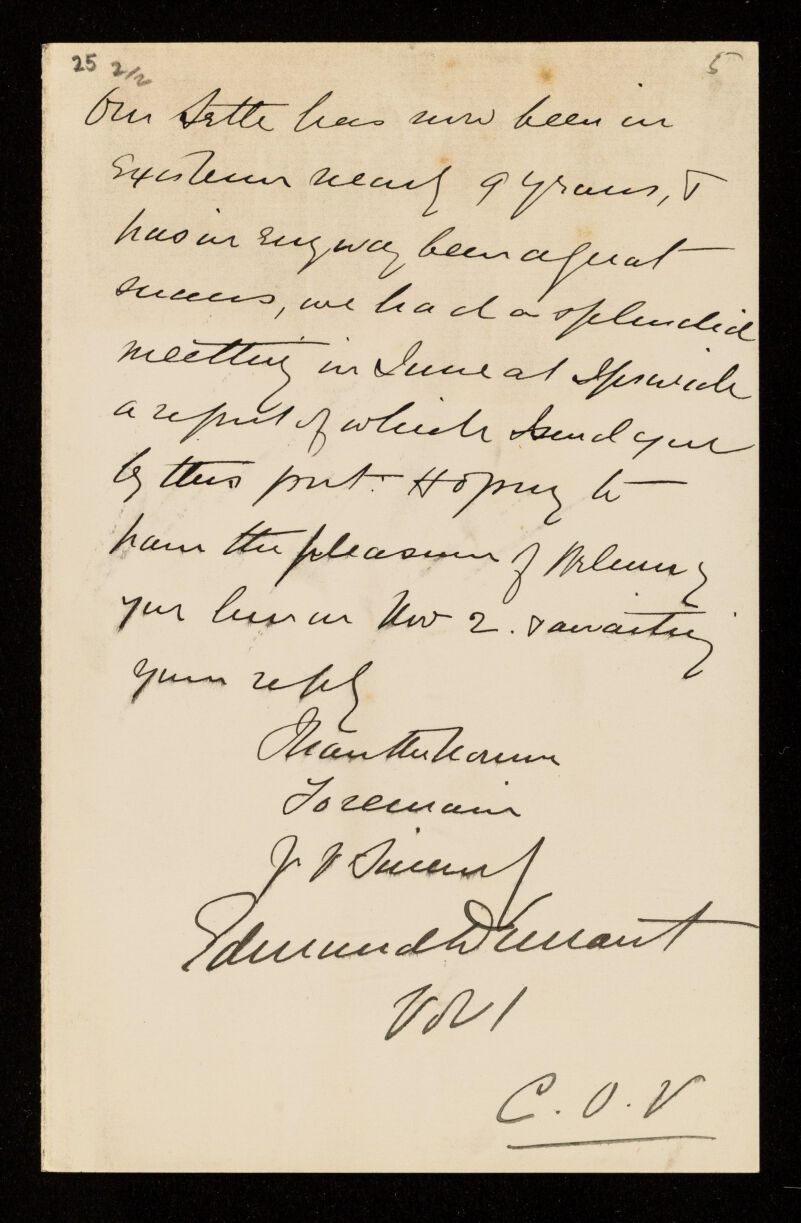 25 2/2
5
Our Sette has now been in
Existence nearly 9 years, &
has in Every way been a great
success, we had a splendid
meetting in June at Ipswich
a report of which I send you
by this post. Hoping to
have the pleasure of
your here on Nov 2. & awaiting
your reply
I have the honour
To remain
Yr V Sincerely
Edmund Durrant
Vol 1
C. O. V